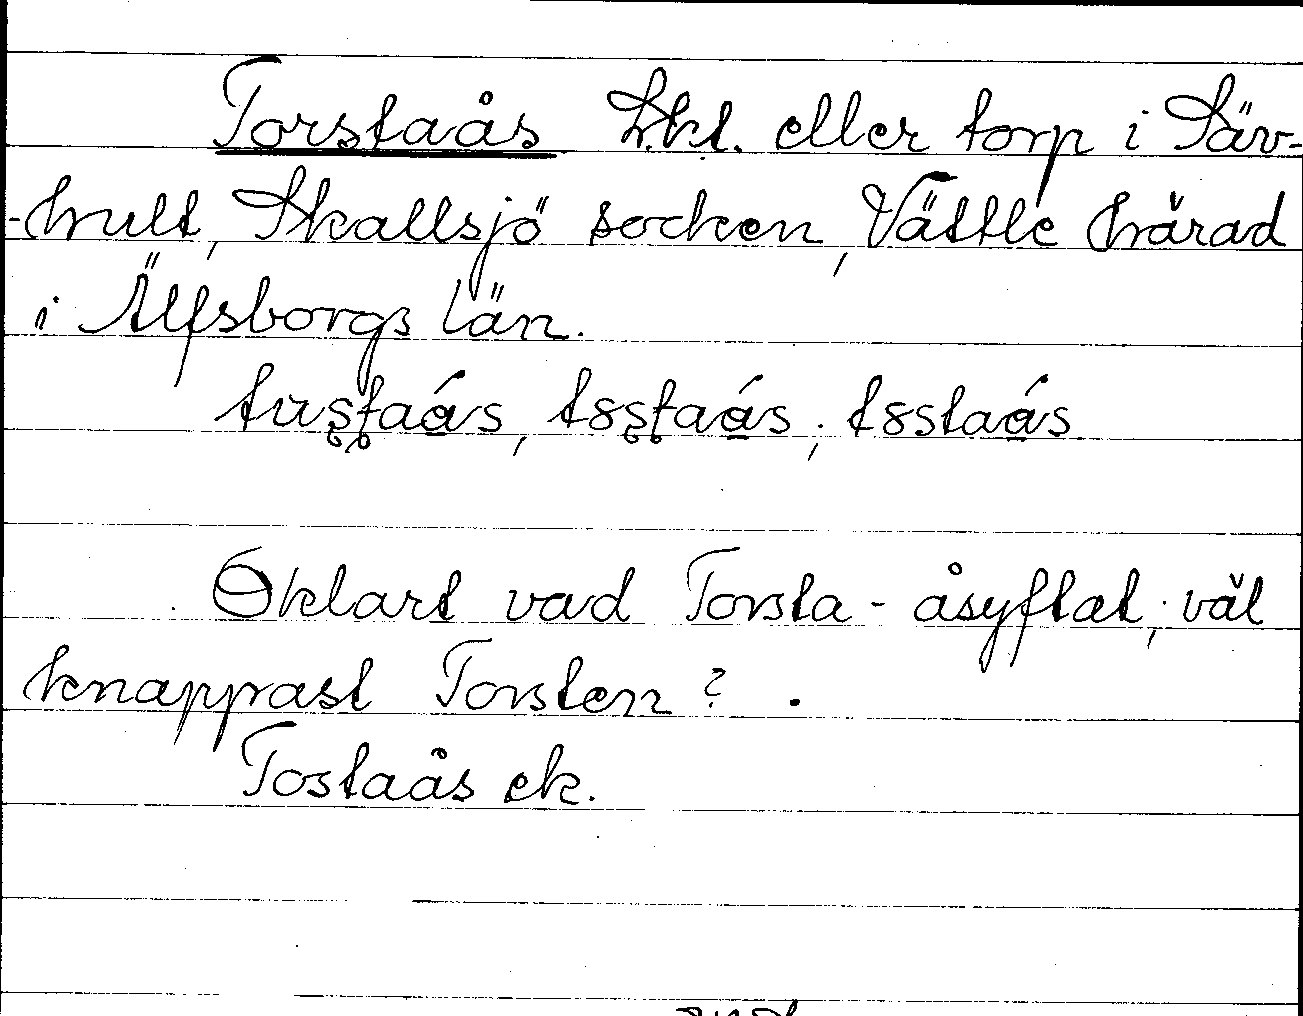 Torstaås Lht. eller torp i Säv-
-hult, Skallsjö socken, Vättle härad
i Älfsborgs län.
Oklart vad Torsta- åsyftat; väl
knappast Torsten?.
Tostaås ek.